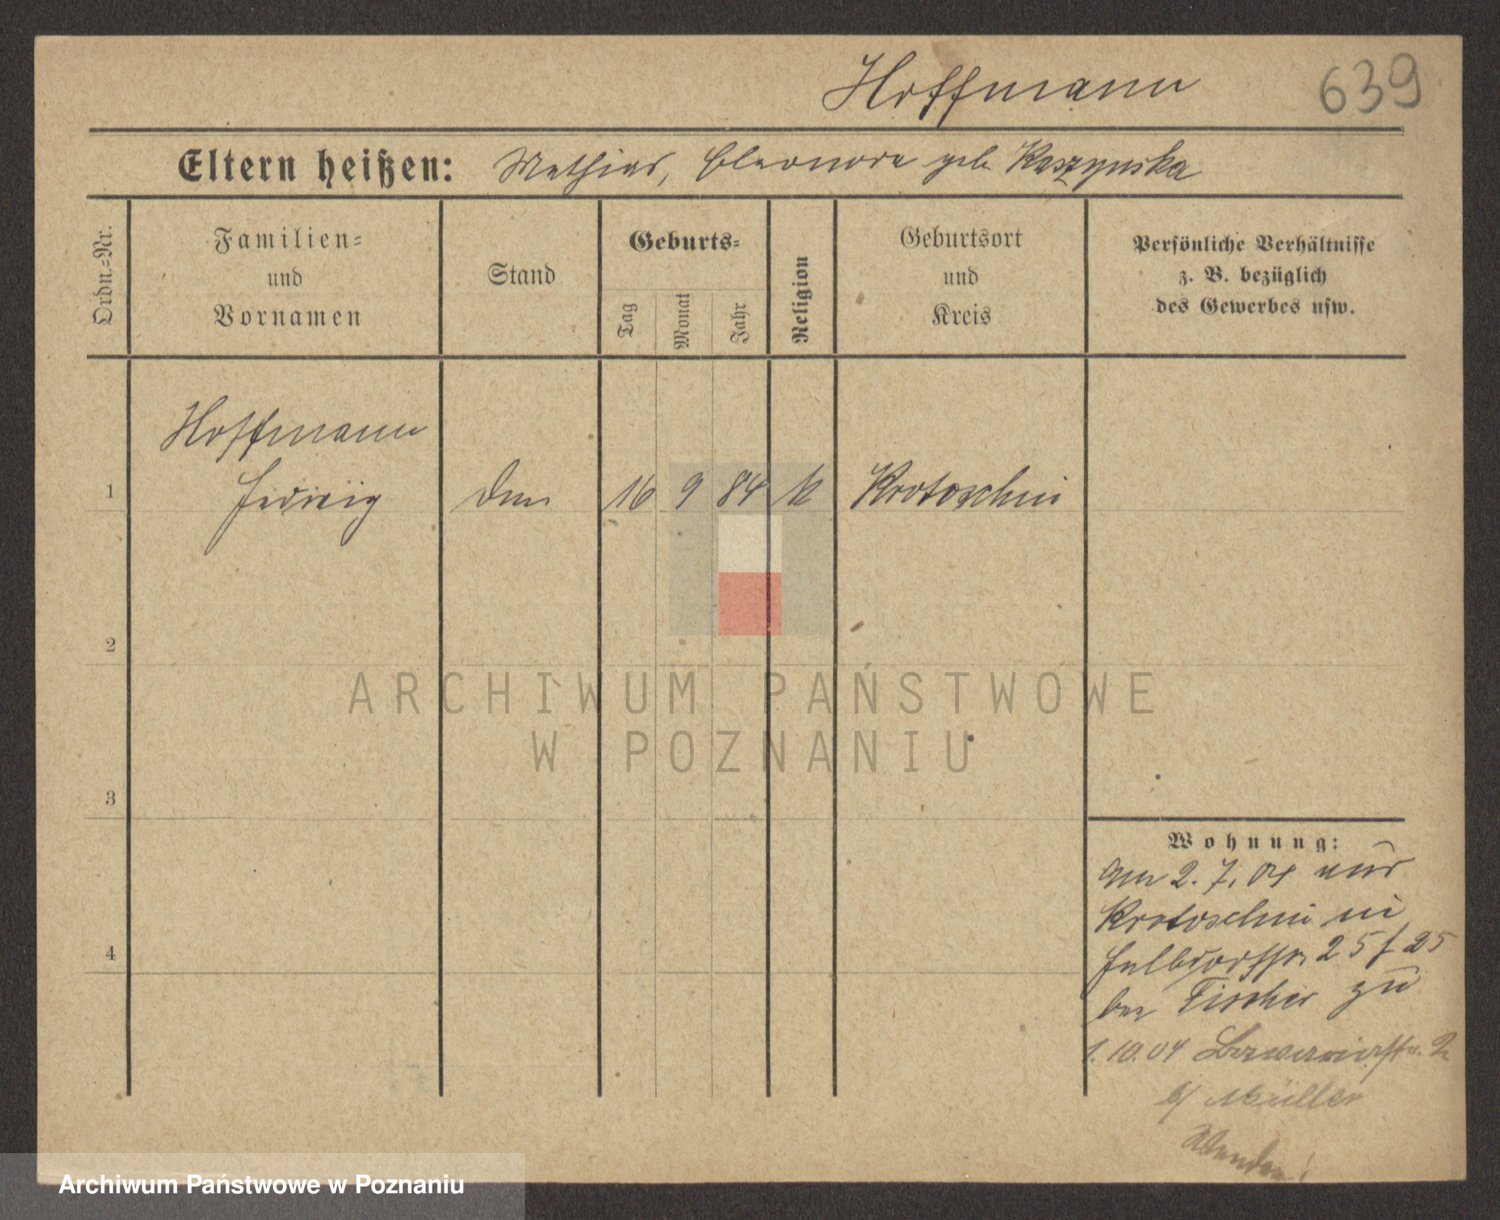 Hoffmann 639
Eltern heißen: Mathias, Eleonore geb. Kaszynska
Ordn.-Nr.
Familien-
und
Vornamen
Stand
Geburts-
Tag
Monat
Jahr
Religion
Geburtsort
und
Kreis
Persönliche Verhältnisse
z. B. bezüglich
des Gewerbes usw.
Hoffmann
1 Hedwig 16 9 84 k Krotoschin
2
3
4
Wohnung:
Am 2. 7. 04 aus
Krotoschin in
25
bei Fischer zu
1.10.04
b/ Müller
Wenden!
ARCHIWUM PAŃSTWOWE
W POZNANIU
Archiwum Państwowe w Poznaniu